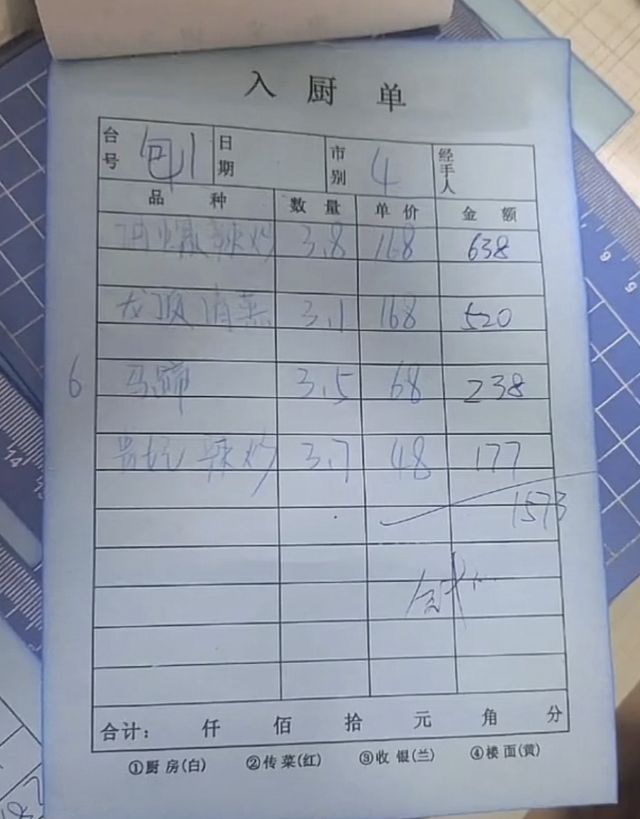 入厨单
台号 包1 日期 市别 4 经手人
品种 数量 单价 金额
辣炒 3.8 168 638
龙虾 3.1 168 520
6 马蹄 3.5 68 238
辣炒 3.7 48 177
1573
合计： 仟 佰 拾 元 角 分
①厨房(白) ②传菜(红) ③收银(兰) ④楼面(黄)